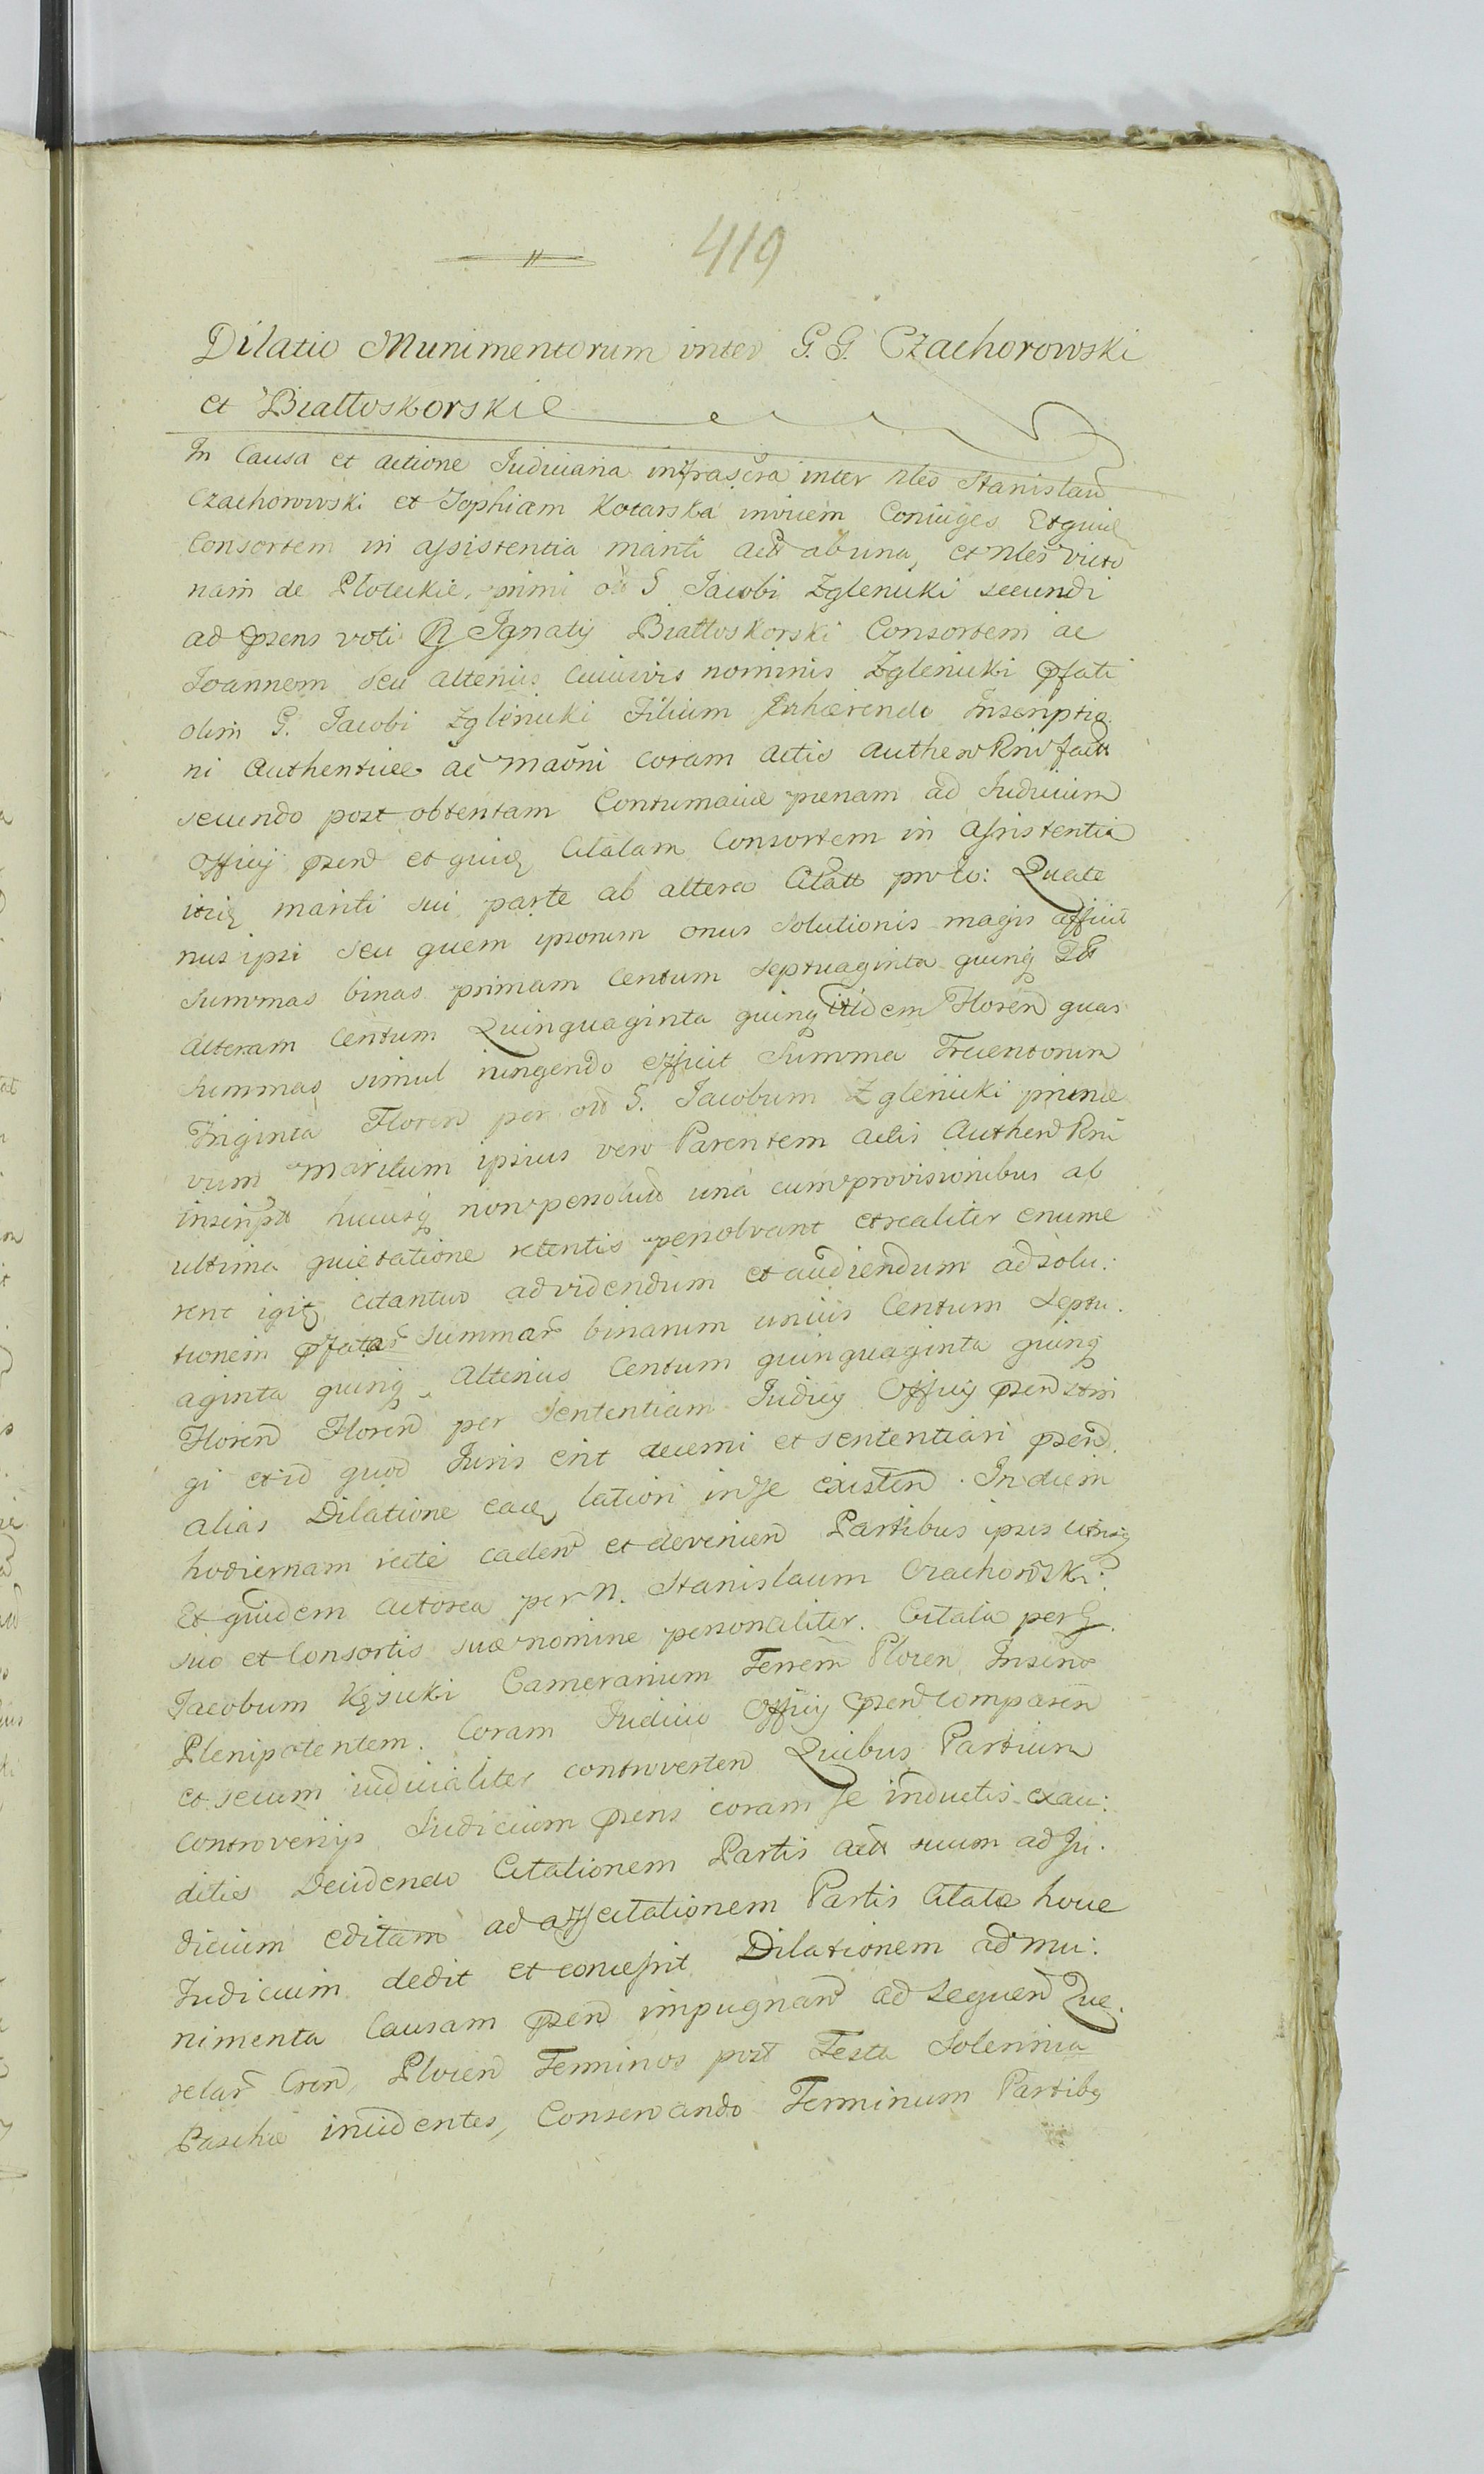 419
Dilatio Munimentorum inter G. G. Czachorowski
et Białłoskorskie
In Causa et actione Judiciaria infrascra inter Nles Stanislau
Czachorowski et Sophiam Kotarska invicem Coniuges Et quid
Consortem in assistentia mariti act ab una, et Nles Victo
riam de Płoteckie, primi oli G Jacobi Zglenicki secundi
ad prens voti G Ignatij Białłoskorski Consortem ac
Joannem seu alterius cuiusvis nominis Zglenicki pfati
olim G. Jacobi Zglinicki Filium Inhærendo Inscriptio
ni Authenticæ ac coram actis authen fact
secundo post obtentam Contumaciæ pænam ad Judicium
Officij psend et quid Citatam Consortem in assistentia
itid mariti sui parte ab altera Citatt pro eo: Quate
nus ipsi seu quem ipsorum onus solutionis magis afficit
summas binas primam Centum Septuaginta quinq
alteram Centum Quinquaginta quinq itidem Floren quas
summas simul iungendo efficit Summa Trecentorum
Triginta Floren per oli G. Jacobum Zglenicki primæ
vum Maritum ipsius vero Parentem Actis Authen
inscript hucusq non persolut una cum provisionibus ab
ultima quietatione retentis persolvant et realiter enume
rent igit citantur ad videndum et audiendum ad solu:
tionem pfatar summar binarum unius Centum Septu:
aginta quinq, Alterius Centum quinquaginta quinq
Floren Floren per Sententiam Judicij Officij psend stri
gi et id quod Juris erit decerni et sententiari psend
alias Dilatione lationi in se existen. In diem
hodiernam recte caden et devenien Partibus ipsis utrisq
Et quidem actorea per N. Stanislaum Czachorowski
suo et Consortis suæ nomine personaliter. Citata per G.
Jacobum Kęsicki Camerarium Terrem Plocen
Plenipotentem. Coram Judicio Officij psend comparen
et secum iudicialiter controverten Quibus Partium
controversijs Judicium psens coram se inductis exau:
ditis Decidendo Citationem Partis act suum ad Ju:
dicium editam ad affectationem Partis Citatæ hocce
Judicium dedit et concessit Dilationem ad mu:
nimenta Causam psen impugnan ad sequen Que:
relar Cren, Plocen Terminos post Festa Solennia
Paschæ incidentes, Conservando Terminum Partibq